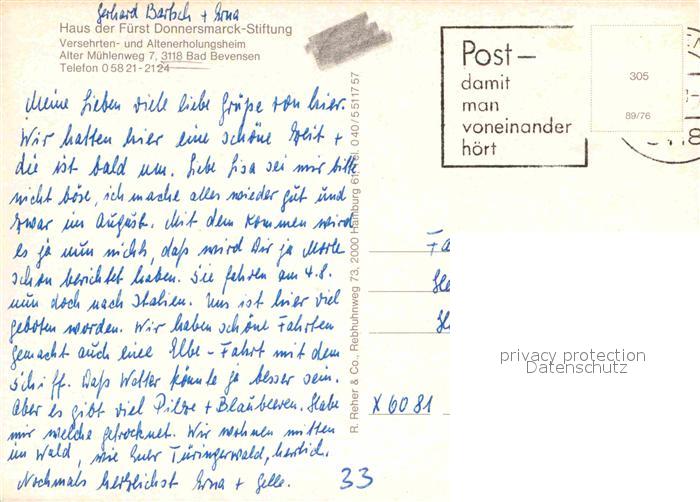 Gerhard Bartsch + Erna
Haus der Fürst Donnersmarck-Stiftung
Versehrten- und Altenerholungsheim
Alter Mühlenweg 7, 3118 Bad Bevensen
Telefon 0 58 21 - 21 24
Meine Lieben viele liebe Grüße von hier.
Wir hatten hier eine schöne Zeit +
die ist bald um. Liebe Lisa sei mir bitte
nicht böse, ich mache alles wieder gut und
zwar im August. Mit dem kommen wird
es ja nun nichts, daß wird Dir ja
schon berichtet haben. Sie fahren am 4.8.
nun doch nach Italien. Uns ist hier viel
geboten worden. Wir haben schöne Fahrten
gemacht auch eine Elbe-Fahrt mit dem
Schiff. Daß Wetter könnte ja besser sein.
Aber es gibt viel Pilze + Blaubeeren. Habe
mir welche getrocknet. Wir wohnen mitten
im Wald, wie Euer Türingerwald, herrlich.
Nochmals herzlichst Erna +
33
R. Reher & Co., Rebhuhnweg 73, 2000 Hamburg 61, Tel. 0 40 / 5 51 17 57
Post –
damit
man
voneinander
hört
305
89/76
Fa
X 6081
privacy protection
Datenschutz